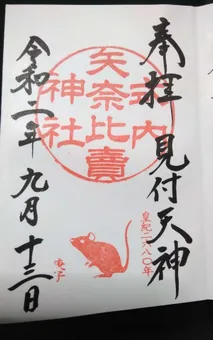 奉拝 見付天神
式内
矢奈比賣
神社
皇紀二六八〇年
庚子
令和二年九月十三日